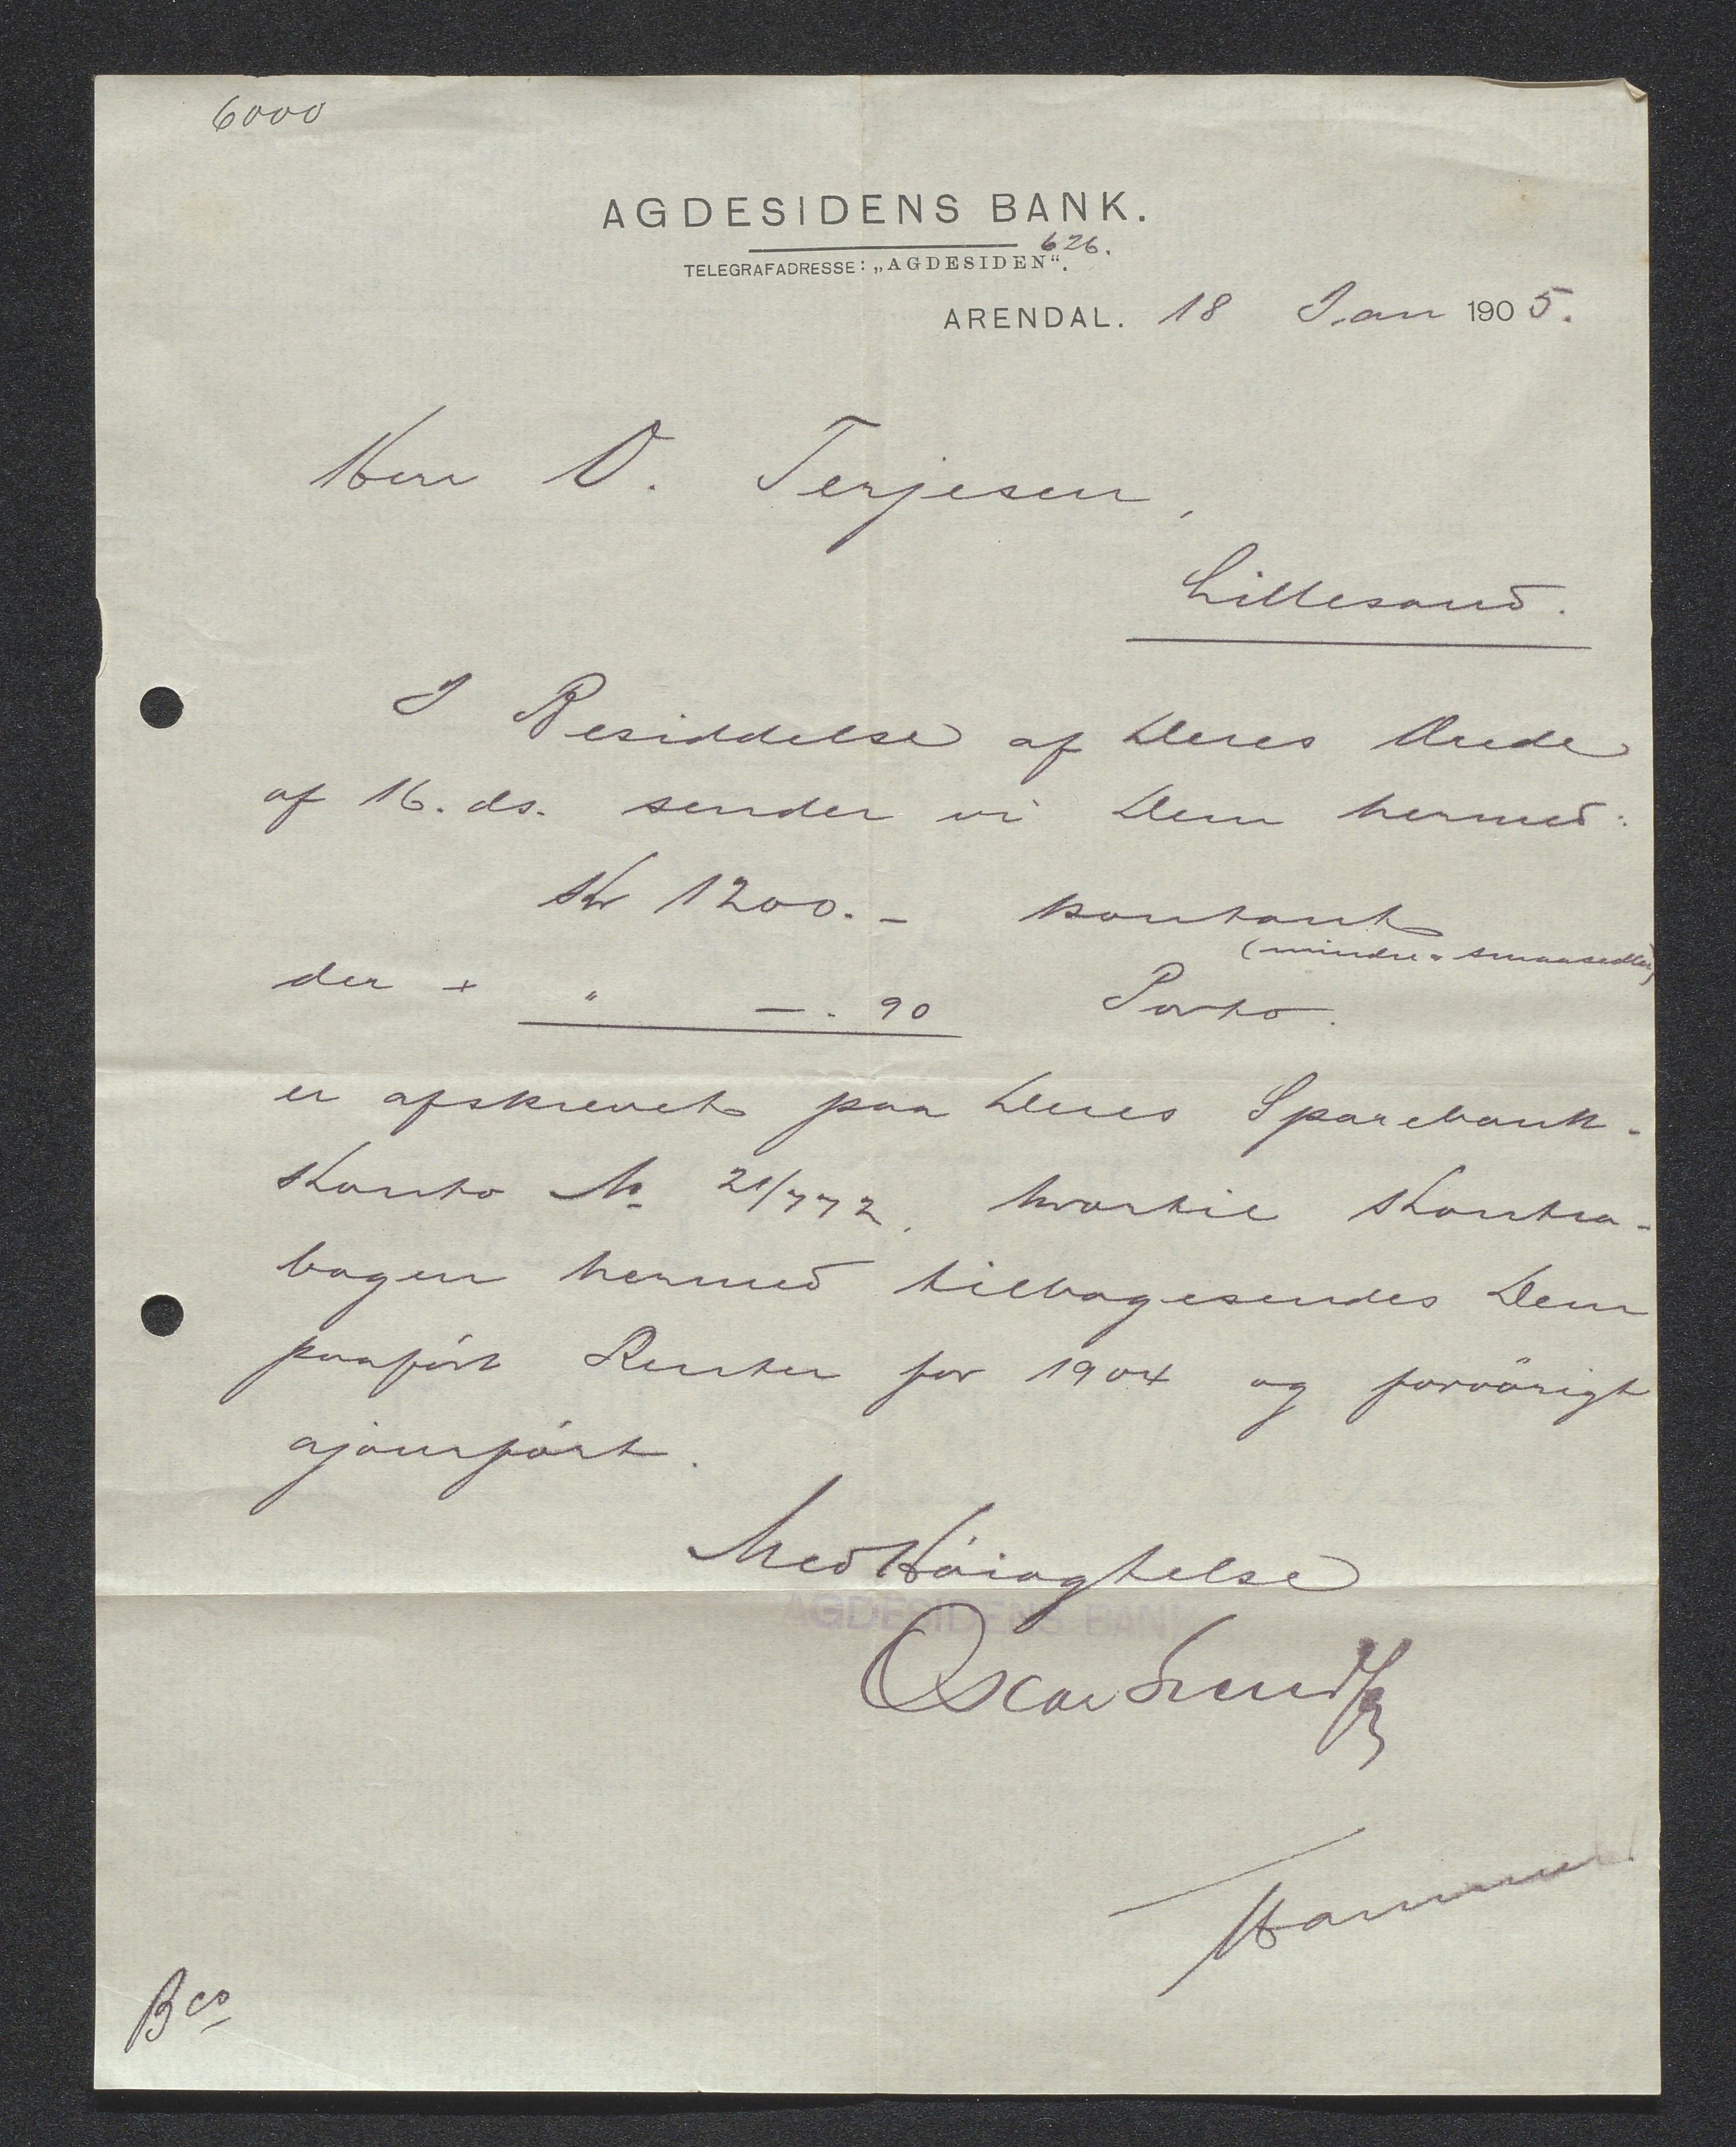 6000
AGDESIDENS BANK.
626.
TELEGRAFADRESSE: „AGDESIDEN“.
ARENDAL. 18 Jan 1905.
Herr O. Terjesen,
Lillesand.
I Besiddelse af Deres Ærede
af 16. ds. sender vi Dem hermed:
Kr 1200.- kontant
(mindre smaasedler)
der + " -. 90 Porto.
er afskrevet paa Deres Sparebank-
Konto No 21/772, hvortil Kontra-
bogen hermed tilbagesendes Dem
paaført Renter for 1904 og forøvrigt
ajourført.
Med Høiagtelse
AGDESIDENS BANK
Oscar
Bco